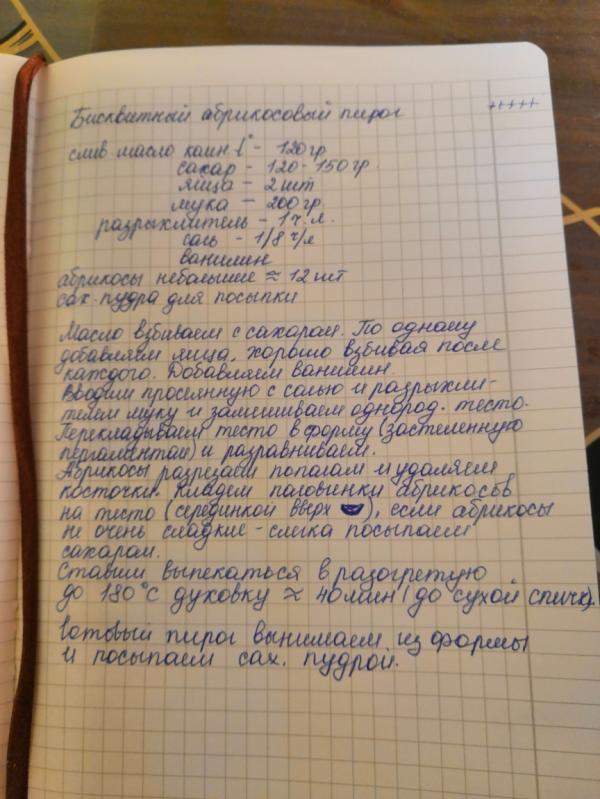 Бисквитный абрикосовый пирог +++++
слив. масло комн t° - 120 гр
сахар - 120-150 гр.
яйца - 2 шт
мука - 200 гр.
разрыхлитель - 1 ч.л.
соль - 1/8 ч/л
ванилин
абрикосы небольшие ≈ 12 шт
сах. пудра для посыпки
Масло взбиваем с сахаром. По одному
добавляем яйца, хорошо взбивая после
каждого. Добавляем ванилин.
Вводим просеянную с солью и разрыхли-
телем муку и замешиваем однород. тесто.
Перекладываем тесто в форму (застеленную
пергаментом) и разравниваем.
Абрикосы разрезаем пополам и удаляем
косточки. Кладем половинки абрикосов
на тесто (серединкой вверх), если абрикосы
не очень сладкие - слегка посыпаем
сахаром.
Ставим выпекаться в разогретую
до 180°С духовку ≈ 40 мин (до сухой спички).
Готовый пирог вынимаем из формы
и посыпаем сах. пудрой.